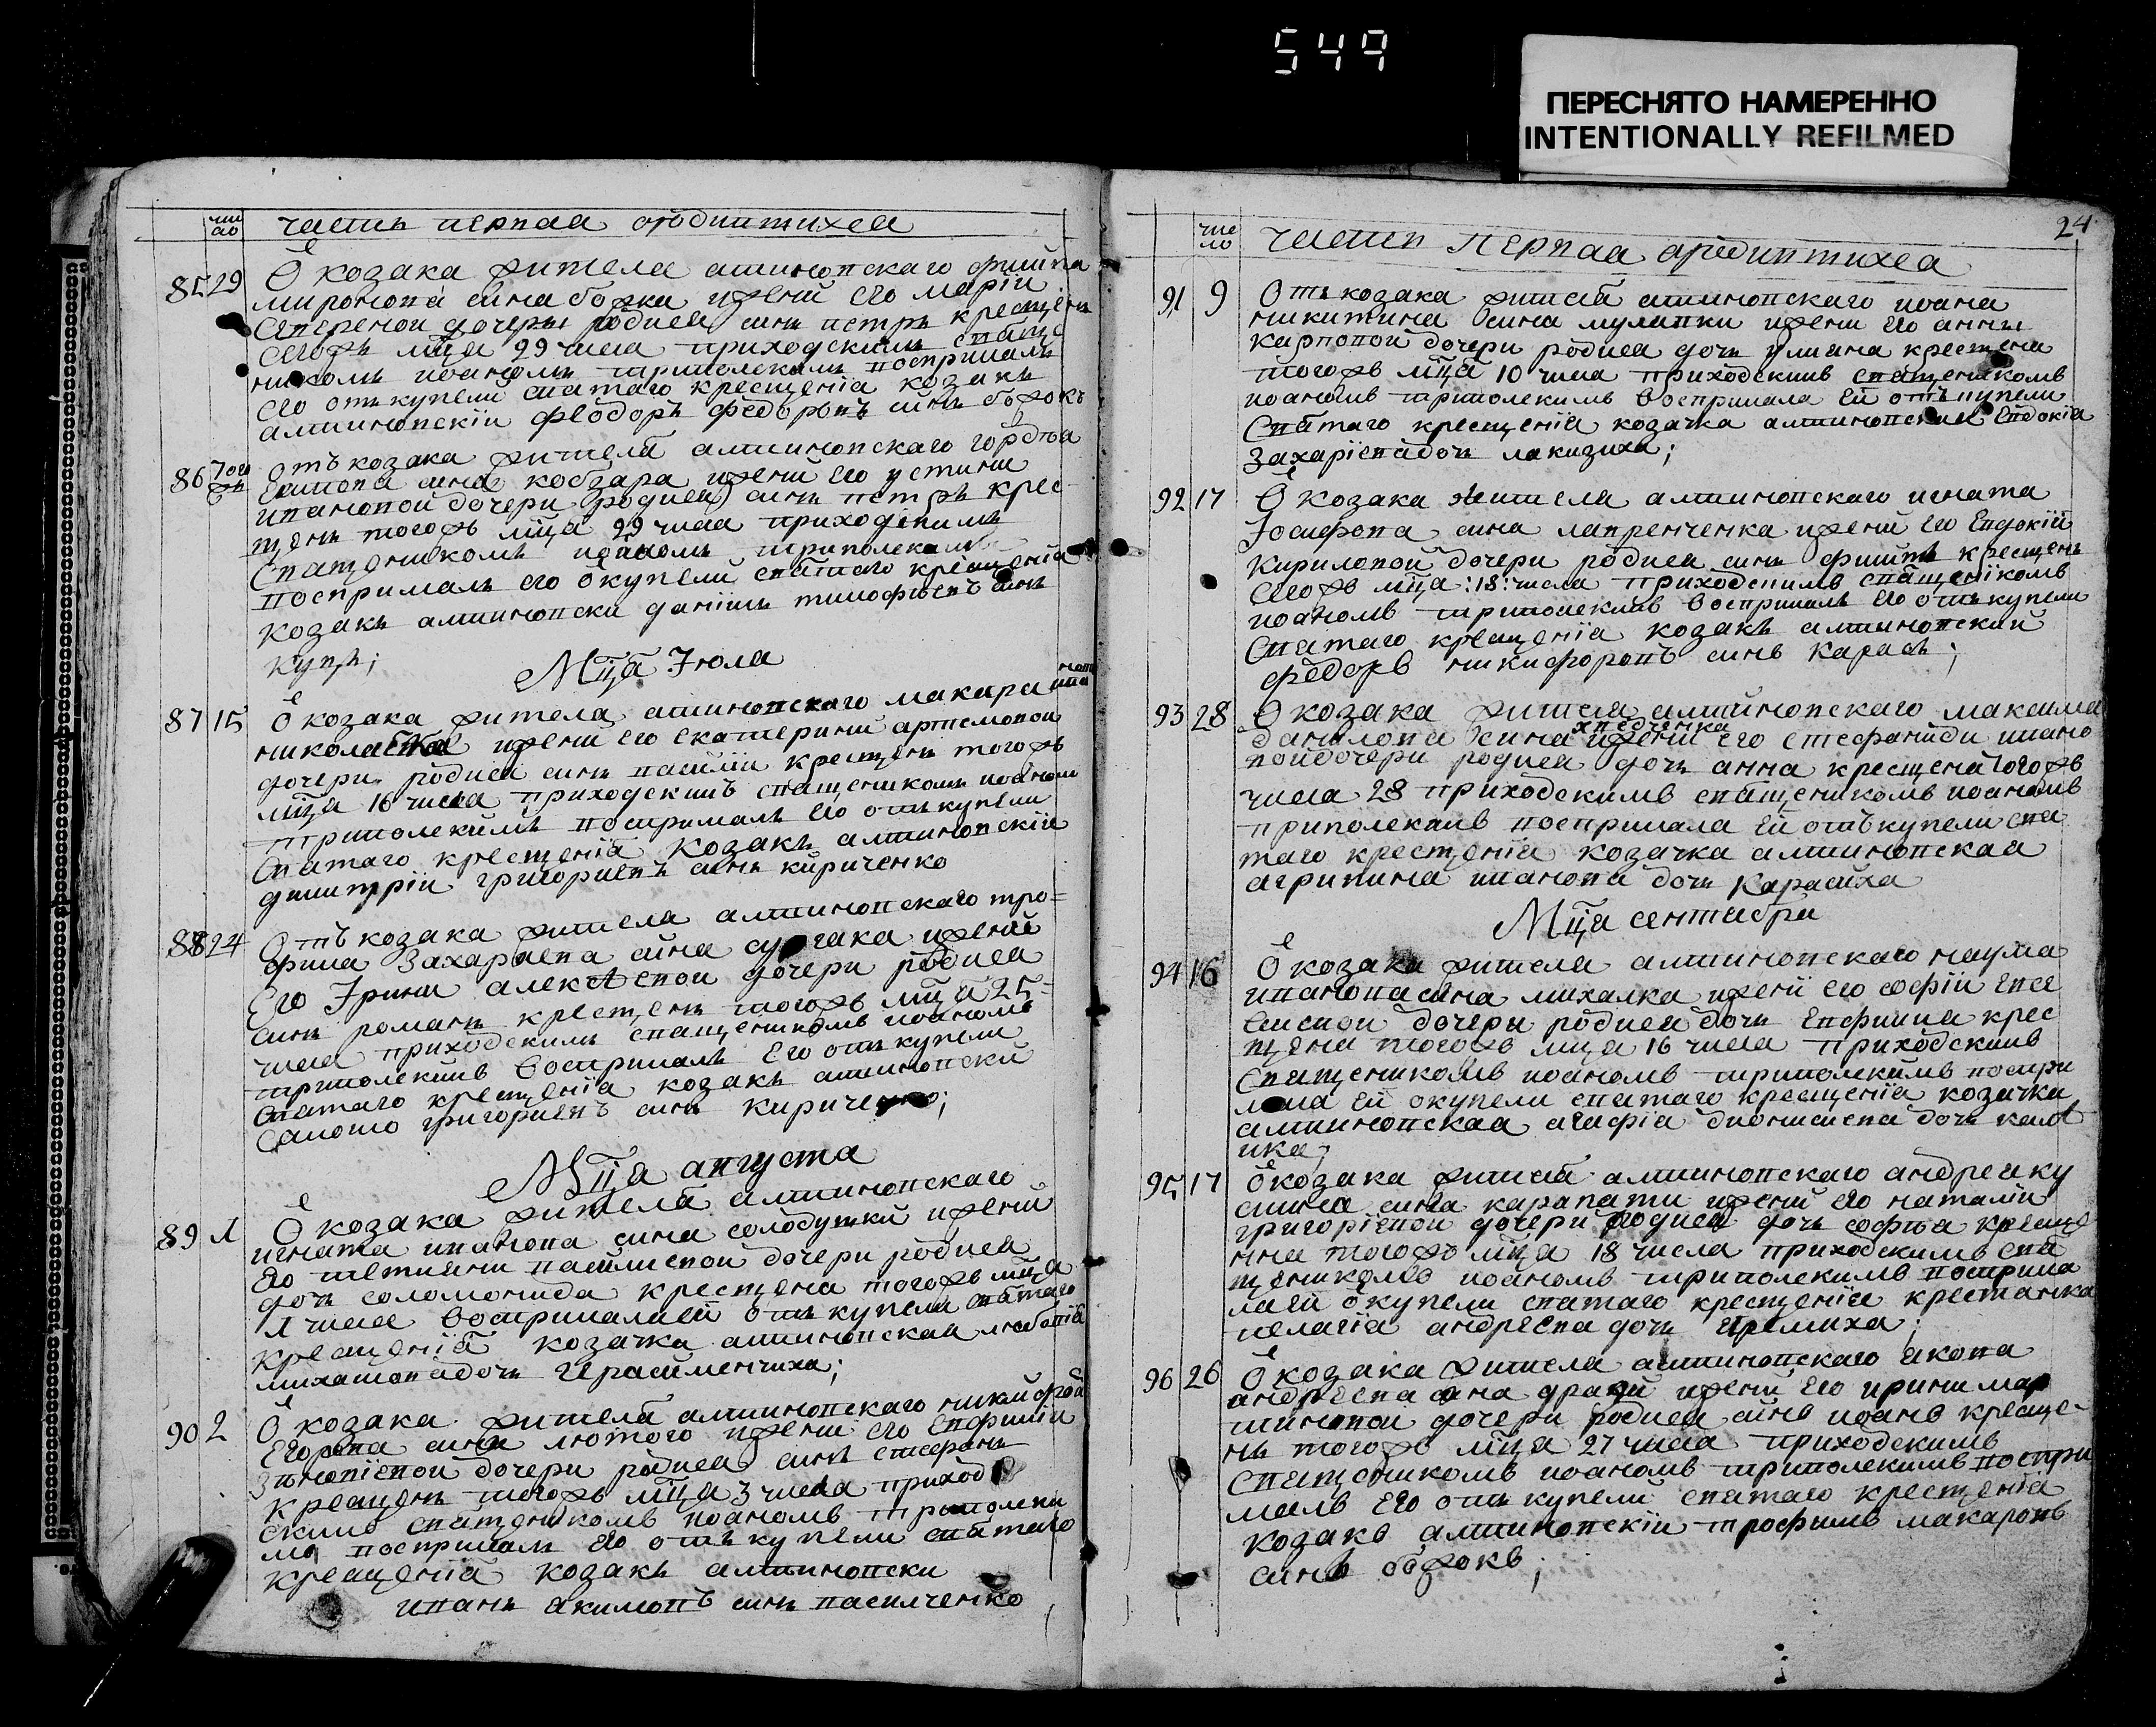 549
ПЕРЕСНЯТО НАМЕРЕННО
INTENTIONALLY REFILMED
чи
ло
часть первая ородившихся
85 29 Ѿ козака жителя алтиновскаго филипа
миронова сина божка и жени его маріи
дочери родился синъ петръ крещенъ
тогожъ мца 29 числа приходскимъ сващe
никомъ иоаномъ триполскимъ восприялъ
его отъ купели сватаго крещениіа козакъ
алтиновскіи феодоръ федоровъ синъ божокъ
86 тогожъ отъ козака жителя алтиновскаго гордѣа
сина кобзара и жени его устини
ивановой дочери родился синъ петръ крес
щенъ тогожъ мца 29 числа приходскимъ
сващеникомъ иоаномъ триполскимъ
восприялъ его Ѿ купели сватаго крещеніа
козакъ алтиновски даніилъ тимофѣевъ синъ
купѣ;
Мца Июла
87 15 Ѿ козака жителя алтиновскаго макара
николаенка и жени его екатерини артемовой
дочери родился синъ василій крещенъ тогожъ
мца 16 числа приходскимъ сващеникомъ иоаномъ
триполскимъ восприялъ его отъ купели
сватаго крещеніа козакъ алтиновскіи
димитріи григориевъ синъ кириченко
88 24 Отъ козака жителя алтиновскаго тро=
фима Захариева сина и жени
его Ирини алексѣевой дочери родился
синъ романъ крещенъ тогожъ мца 25=
числа приходскимъ сващеникомъ иоаномъ
триполскимъ восприялъ его отъ купели
сватаго крещеніа козакъ алтиновски
григориевъ синъ кириченко;
Мца августа
89 1 Ѿ козака жителя алтиновскаго
игната иванова сина солодушки и жени
его тетияни василиевой дочери родился
дочь соломонида крещена тогожъ мца
1 числа восприяла ей отъ купели сватаго
крещеніа козачка алтиновская
дочь герасименчиха;
90 2 Ѿ козака жителя алтиновскаго никифора
Егорова сина лютого и жени его евфиміи
Зѣновіевой дочери родился синъ стефанъ
крещенъ тогожъ мца 3 числа приход
скимъ сващеникомъ иоаномъ триполски
мъ восприялъ его отъ купели сватаго
крещеніа козакъ алтиновски
иванъ акимовъ синъ василченко
24
чис
ло
часть первая ородившихся
91 9 Отъ козака жителя алтиновскаго иоана
никитина сина мулявки и жени его анны
карповой дочери родился дочь улияна крещена
тогожъ мца 10 числа приходскимъ сващеникомъ
иоаномъ триполскимъ восприяла ей отъ купели
сватаго крещеніа козачка алтиновская евдокіа
захаріева дочь лакизиха;
92 17 Ѿ козака жителя алтиновскаго игната
Иосифова сина лавренченка и жени его евдокіи
кириловой дочери родился синъ филипъ крещенъ
тогожъ мца :18: числа приходскимъ сващеникомъ
иоаномъ триполскимъ восприялъ его отъ купели
сватаго крещеніа козакъ алтиновский
федоръ никифоровъ синъ карась;
93 28 Ѿ козака жителя алтиновскаго максима
данилова сина хведченка и жени его стефаниди ивано
вой дочери родился дочь анна крещена тогожъ
числа 28 приходскимъ сващеникомъ иоаномъ
триполскимъ восприяла ей отъ купели сва
таго крещеніа козачка алтиновская
агрипина иванова дочь карасиха
Мца сентабра
94 16 Ѿ козака жителя алтиновскаго наума
иванова сина михалка и жени его софіи евсе
виевой дочери родился дочь евфимия крес
щена тогожъ мца 16 числа приходскимъ
сващеникомъ иоаномъ триполскимъ воспри
мала ей Ѿ купели сватаго крещеніа козачка
алтиновская агафіа дионисиева дочь
ика;
95 17 Ѿ козака жителя алтиновскаго андрея ку
сина каравати и жени его наталіи
григоріевой дочери родился дочь софѣа креще
нна тогожъ мца 18 числа приходскимъ сва
щеникомъ иоаномъ триполскимъ восприма
ла ей Ѿ купели сватаго крещеніа крестянка
пелагіа андреева дочь яремиха;
96 26 Ѿ козака жителя алтиновскаго якова
андреева сина и жени его ирини мар
тиновой дочери родился синъ иоанъ креще-
нъ тогожъ мца 27 числа приходскимъ
сващеникомъ иоаномъ триполскимъ воспри
малъ его отъ купели сватаго крещеніа
козакъ алтиновскіи трофимъ макаровъ
синъ божокъ;